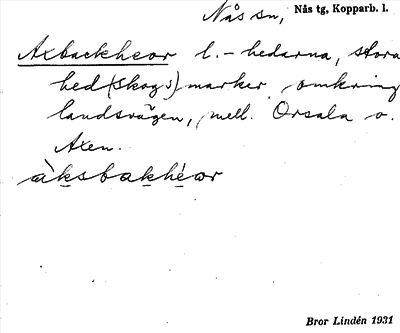 Nås sn, Nås tg, Kopparb. l.
Axbackheor l. -hedarna, stora
hed(skogs)marker omkring
landsvägen, mell. Orsala o.
Axen.
àksbakhéor
Bror Lindén 1931